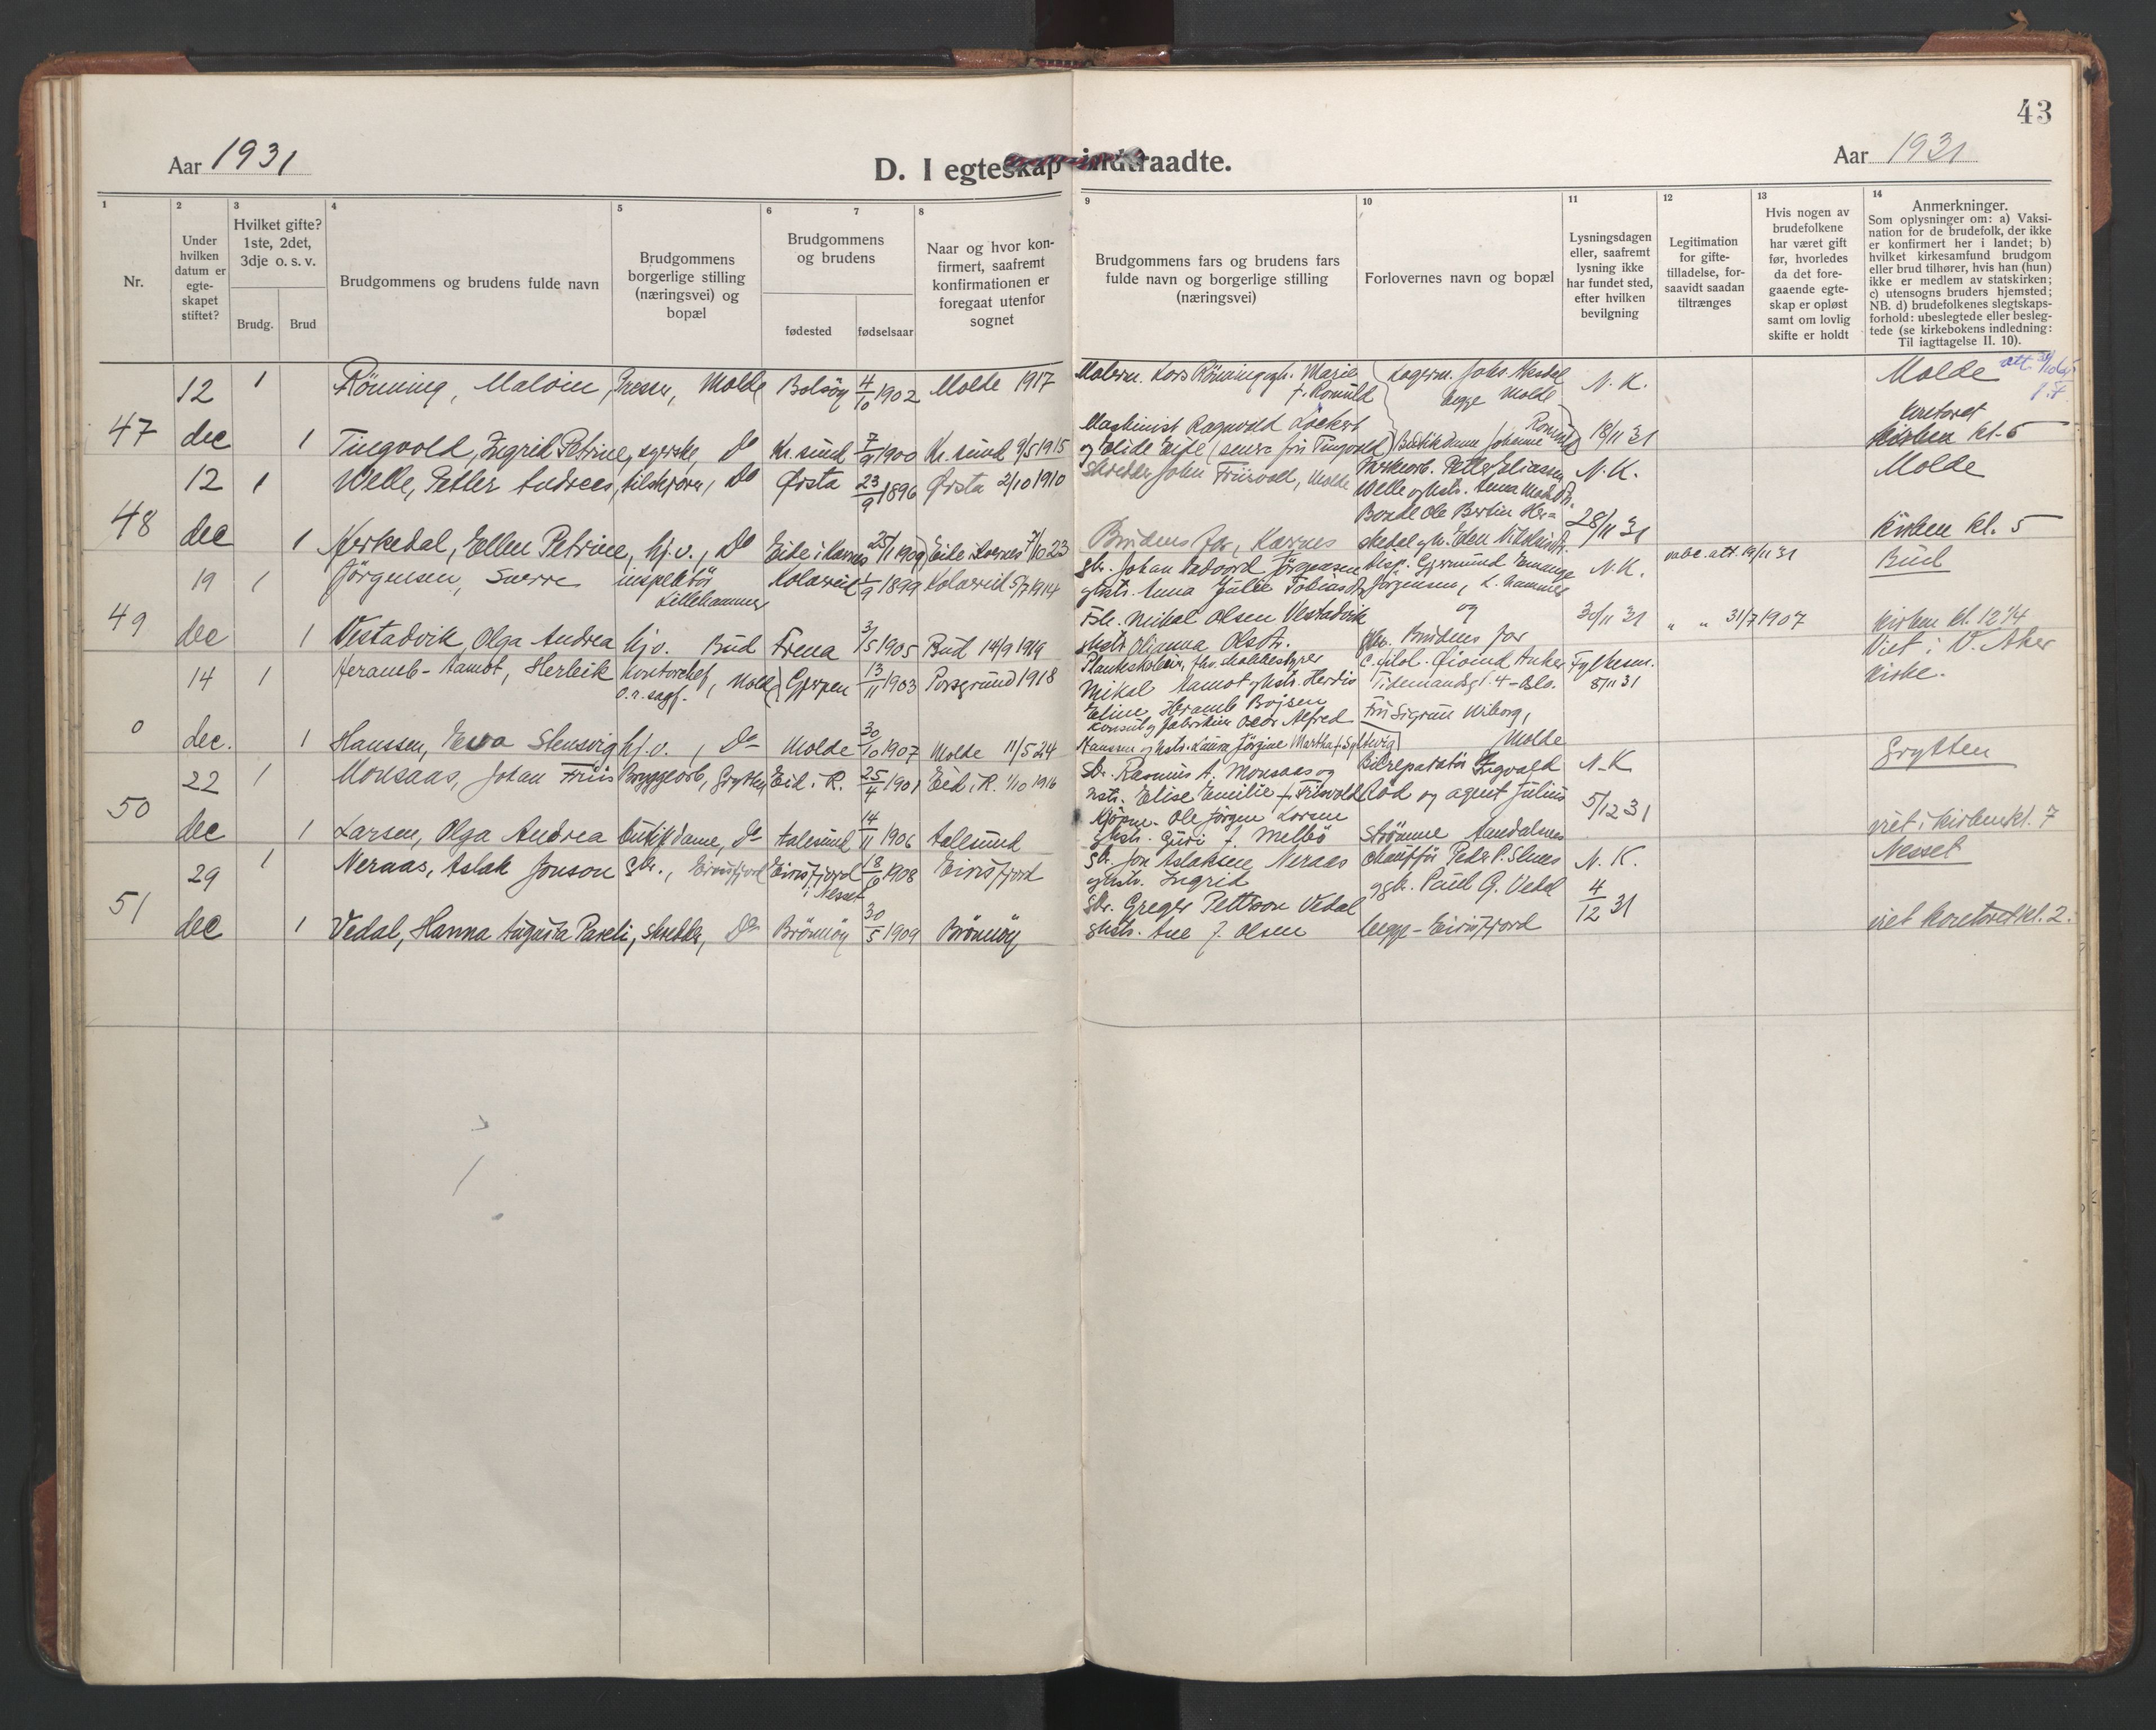 43
Aar 1931
D. I egteskap indtraadte.
Aar 1931
1
2
3
4
5
6
7
8
9
10
11
12
13
14
Nr.
Under hvilken datum er egte-skapet stiftet?
Hvilket gifte? 1ste, 2det, 3dje o. s. v.
Brudg.
Brud
Brudgommens og brudens fulde navn
Brudgommens borgerlige stilling (næringsvei) og bopæl
Brudgommens og brudens
fødested
fødselsaar
Naar og hvor kon-firmert, saafremt konfirmationen er foregaat utenfor sognet
Brudgommens fars og brudens fars fulde navn og borgerlige stilling (næringsvei)
Forlovernes navn og bopæl
Lysningsdagen eller, saafremt lysning ikke har fundet sted, efter hvilken bevilgning
Legitimation for gifte-tilladelse, for-saavidt saadan tiltrænges
Hvis nogen av brudefolkene har været gift før, hvorledes da det fore-gaaende egte-skap er opløst samt om lovlig skifte er holdt
Anmerkninger.
Som oplysninger om: a) Vaksi-nation for de brudefolk, der ikke er konfirmert her i landet; b) hvilket kirkesamfund brudgom eller brud tilhører, hvis han (hun) ikke er medlem av statskirken; c) utensogns bruders hjemsted; NB. d) brudefolkenes slegtskaps-forhold: ubeslegtede eller besleg-tede (se kirkebokens indledning: Til iagttagelse II. 10).
12 1 Rönning, Malvin, Molde Bolsöy 4/10 1902 Molde 1917 Malerm. Lars Rönning Marie f. Romuld Lagerm. Johs. begge Molde N. K. Molde
47 dec 1 Tingvold, Ingrid Petrine, syerske, Do Kr.sund 7/9 1900 Kr.sund 9/5 1915 Maskinist Ragnvald Lockert og Elide (senere fru Tingvold) Butikdame Johanne Romuld 18/11 31 kontoret kirken kl. 5
12 1 Welle, Petter Andreas, Do Ørsta 23/9 1896 Ørsta 2/10 1910 Skredder John Friisvold, Molde Petter Eliassen Welle N. K. Molde
48 dec 1 Herskedal, Ellen Petrine, hj.v., Do Eide i 25/11 1909 Eide i 7/10 23 Brudens far, Kornes Bonde Ole Bertin Her=skedal 28/11 31 kirken kl. 5
19 1 Jörgensen, Sverre inspektör Lillehammer Kolvereid 1/9 1899 Kolvereid 5/7 1914 gbr. Johan Edvard Jörgensen Anna Julie Tobiasdtr. Disp. Gjermund Jörgensen, L. hammer N. K. vabc. att. 19/11 31 Bud
49 dec 1 Vestadvik, Olga Andrea hj.v. Bud Fræna 3/5 1905 Bud 14/9 1919 Mikal Olsen Vestadvik Olianna Olsdtr. og Brudens far 30/11 31 " " 31/7 1907 kirken kl. 12 1/4
14 1 Heramb-Aamot, Herleik Kontorchef o.r.sagf., Molde Gjerpen 13/11 1903 Porsgrund 1918 Mikal Aamot og hstr. Herdis Eline Heramb Bojsen C. philol. Öivind Anker Tidemandsgt. 4 - Oslo. 8/11 31 Viet i V. Aker kirke.
0 dec. 1 Hanssen, Ewa Slensvig hj.v., Do Molde 30/10 1907 Molde 11/5 24 Konsul og fabrikeier Oscar Alfred Hanssen og hstr. Laura Jörgine Martha f. Fru Sigrun Wiborg, Molde
22 1 Monsaas, Johan Friis Bryggearb., Grytten Eid i R. 25/4 1901 Eid i R. 1/10 1916 Gbr. Rasmus A. Monsaas og hstr. Elise Emilie f. Friisvold Bilreparatör Ingvald Röd og agent Julius N. K Grytten
50 dec 1 Larsen, Olga Andrea butikdame, Do Aalesund 14/11 1906 Aalesund Kjöpm. Ole Jörgen Larsen hstr. Guri f. Melbö Strömme Aandalsnes 5/12 31 viet i kirken kl. 7
29 1 Neraas, Aslak Jonson Gbr., Eirisfjord Eirisfjord i Nesset 18/6 1908 Eirisfjord Gbr. Jon Aslaksen Neraas og hstr. Ingrid Chaufför Peder P. Slenes og gbr. Paul G. Vedal N. K. Nesset
51 dec 1 Vedal, Hanna Augusta Pareli, skredder, Do Brönnöy 30/5 1909 Brönnöy Gbr. Greger Pettersen Vedal hstr. Ane f. Olsen begge - Eirisfjord 4/12 31 viet kontoret kl. 2.